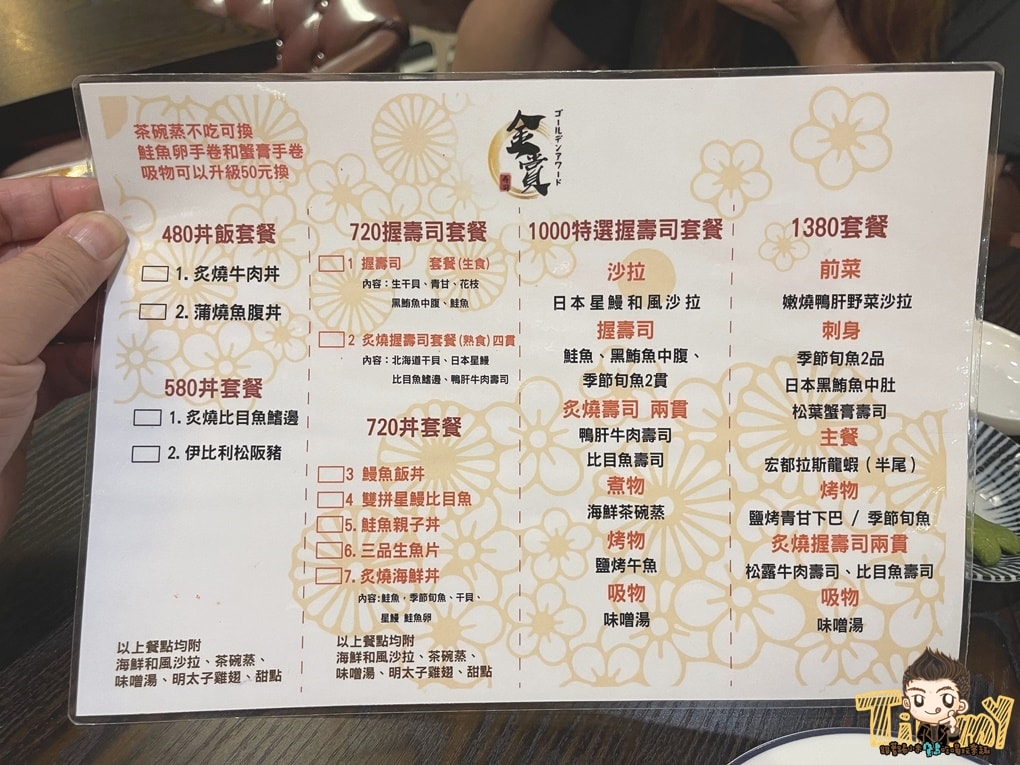 茶碗蒸不吃可換
鮭魚卵手卷和蟹膏手卷
吸物可以升級50元換
金賞
ゴールデンアワード
480丼飯套餐
1. 炙燒牛肉丼
2. 蒲燒魚腹丼
580丼套餐
1. 炙燒比目魚鰭邊
2. 伊比利松阪豬
以上餐點均附
海鮮和風沙拉、茶碗蒸、
味噌湯、明太子雞翅、甜點
720握壽司套餐
1 握壽司 套餐(生食)
內容：生干貝、青甘、花枝
黑鮪魚中腹、鮭魚
2 炙燒握壽司套餐(熟食)四貫
內容：北海道干貝、日本星鰻
比目魚鰭邊、鴨肝牛肉壽司
720丼套餐
3 鰻魚飯丼
4 雙拼星鰻比目魚
5. 鮭魚親子丼
6. 三品生魚片
7. 炙燒海鮮丼
內容:鮭魚，季節旬魚、干貝、
星鰻 鮭魚卵
以上餐點均附
海鮮和風沙拉、茶碗蒸、
味噌湯、明太子雞翅、甜點
1000特選握壽司套餐
沙拉
日本星鰻和風沙拉
握壽司
鮭魚、黑鮪魚中腹、
季節旬魚2貫
炙燒壽司 兩貫
鴨肝牛肉壽司
比目魚壽司
煮物
海鮮茶碗蒸
烤物
鹽烤午魚
吸物
味噌湯
1380套餐
前菜
嫩燒鴨肝野菜沙拉
刺身
季節旬魚2品
日本黑鮪魚中肚
松葉蟹膏壽司
主餐
宏都拉斯龍蝦（半尾）
烤物
鹽烤青甘下巴 / 季節旬魚
炙燒握壽司兩貫
松露牛肉壽司、比目魚壽司
吸物
味噌湯